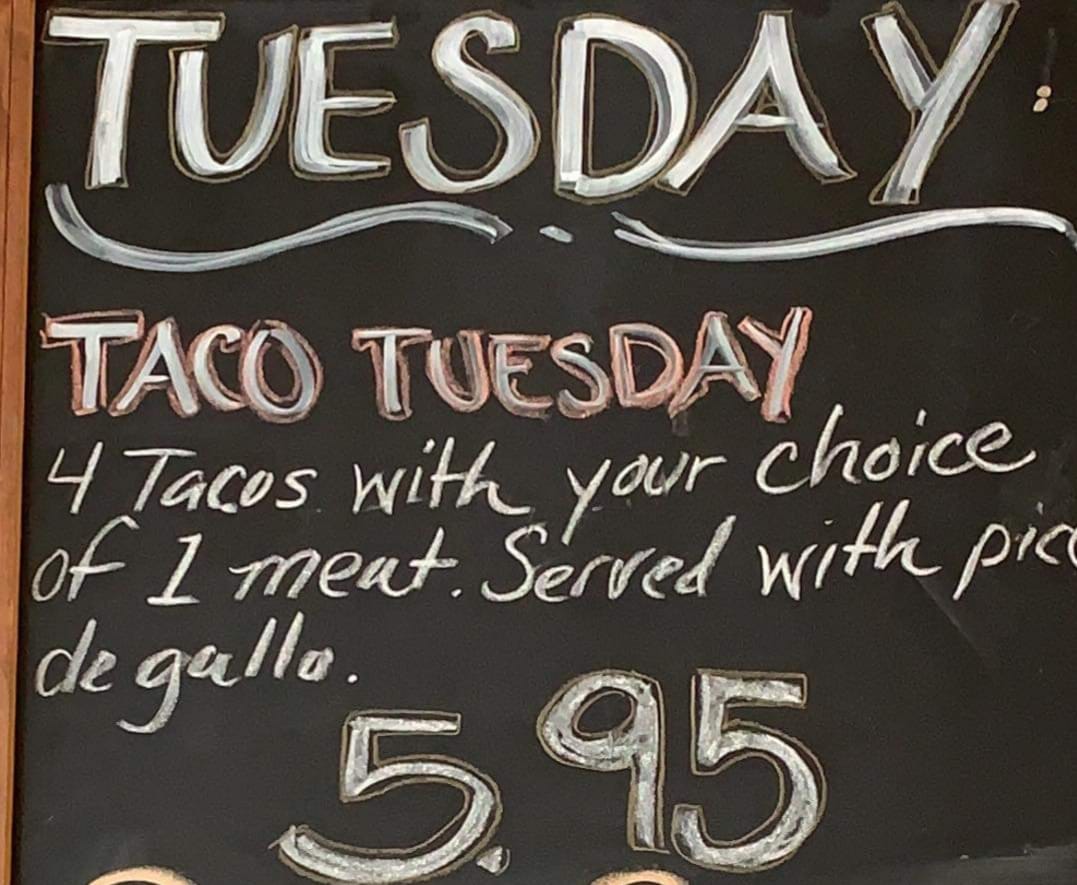 TUESDAY
TACO TUESDAY
4 Tacos with your choice
of 1 meat. Served with pico
de gallo.
5.95